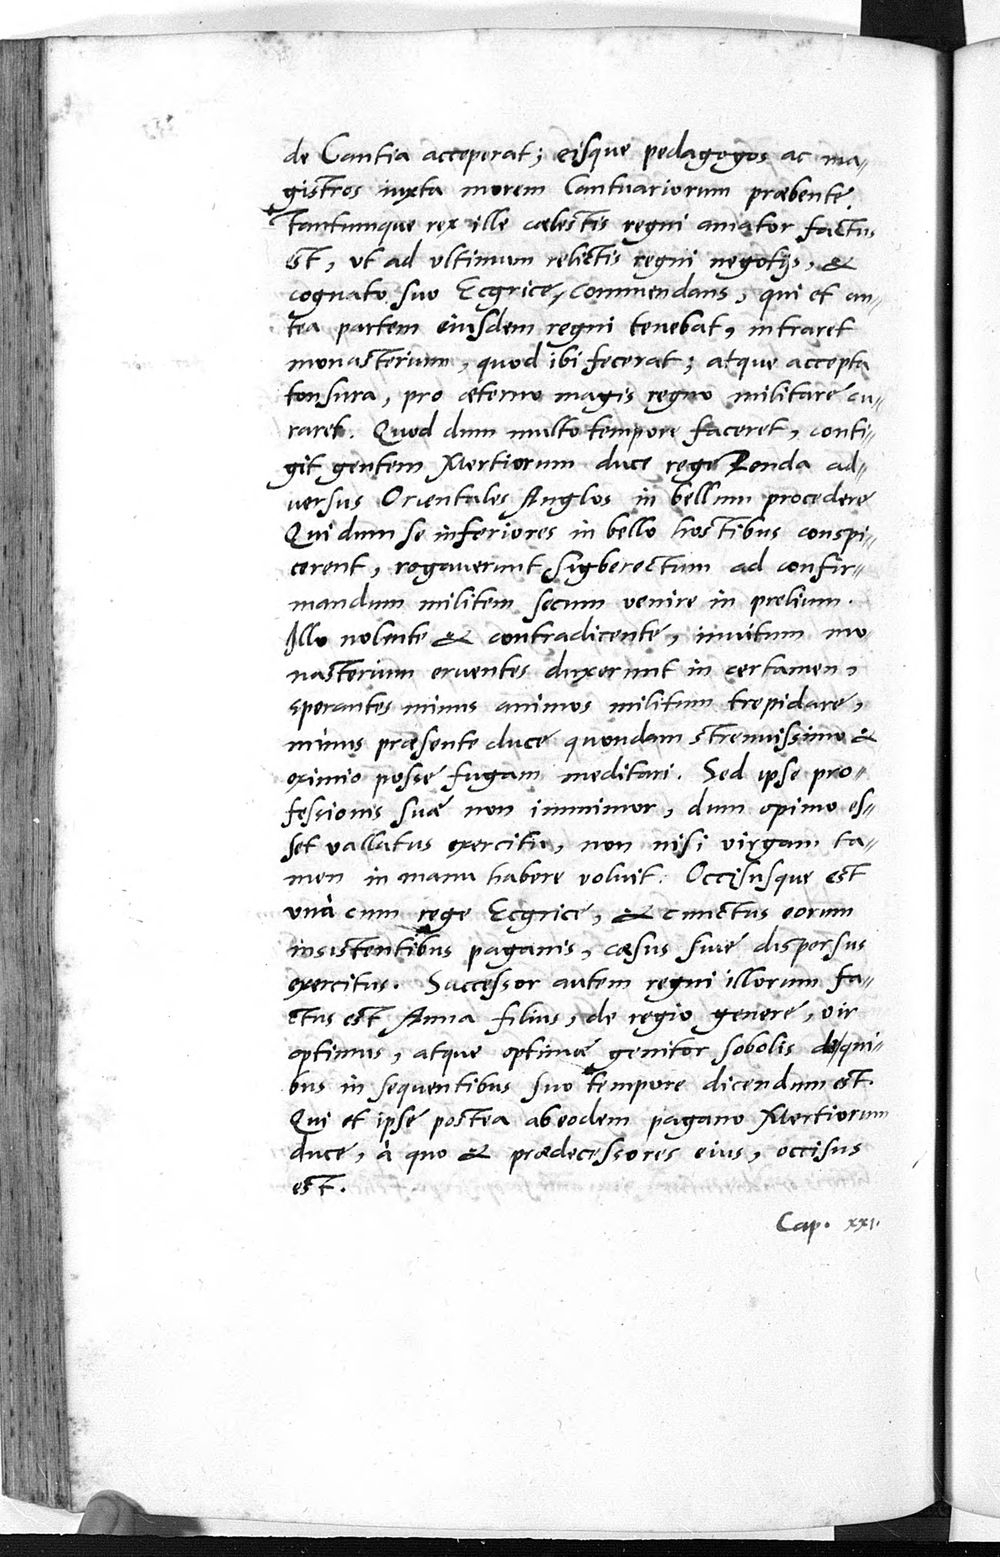 de Cantia acceperat; eisque pedagogos ac ma„
gistros iuxta morem Cantuariorum præbente.
Tantumque rex ille cælestis regni amator factus
est, ut ad ultimum relictis regni negotijs, &
cognato suo Ecgrice, commendans, qui et an„
tea partem eiusdem regni tenebat, intraret
monasterium, quod ibi fecerat; atque accepta
tonsura, pro æterno magis regno militare cu„
raret. Quod dum multo tempore faceret, conti„
git gentem Mertiorum duce rege Penda ad„
versus Orientales Anglos in bellum procedere
Qui dum se inferiores in bello hostibus conspi„
cerent, rogaverunt Sigberectum ad confir„
mandum militem secum venire in prelium.
Illo nolente & contradicente, invitum mo
nasterium eruentes duxerunt in certamen,
sperantes minus animos militum trepidare,
minus præsente duce quondam strenuissimo &
eximio posse fugam meditari. Sed ipse pro„
fessionis suæ non immimor, dum opimo es„
set vallatus exercitu, non nisi virgam ta„
men in manu habere voluit. Occisusque est
unà cum rege Ecgrice, & cunctus eorum
insistentibus paganis, cæsus sive dispersus
exercitus. Successor autem regni illorum fa„
ctus est Anna filius, de regio genere, vir
optimus, atque optimæ genitor sobolis de qui„
bus in sequentibus suo tempore dicendum est.
Qui et ipse postea ab eodem pagano Mertiorum
duce, à quo & prædecessores eius, occisus
est.
Cap. xxi.